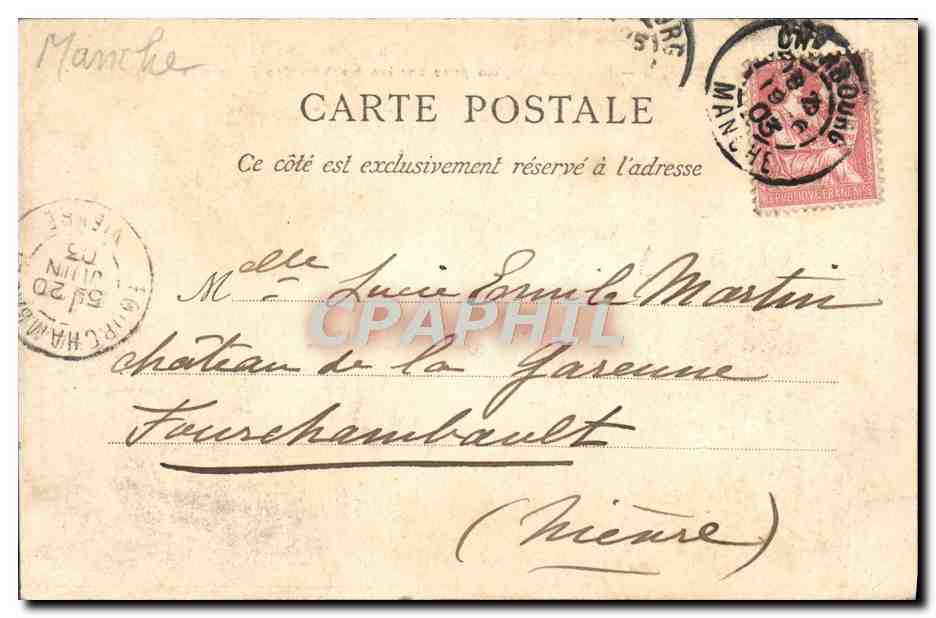 Manche
CARTE POSTALE
Ce côté est exclusivement réservé à l'adresse
CHERBOURG
MANCHE
03
REPUBLIQUE FRANÇAISE
Melle Lucie Emile Martin
château de la Garenne
Fourchambault
(Nièvre)
FOURCHAMBAULT
5E 20
JUIN
03
NIEVRE
CPAPHIL